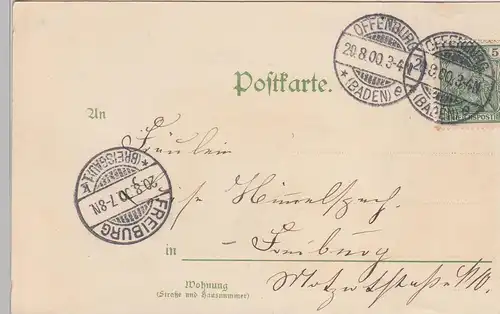 OFFENBURG
20.8.00.3-4N
* (BADEN) e
OFFENBURG
20.8.00.3-4N
* (BADEN) e
5
Postkarte.
An
Fräulein
(BREISGAU) 1 k
20.8.00.7-8N.
FREIBURG
Himmelspach.
in Freiburg
Wohnung
(Straße und Hausnummer)